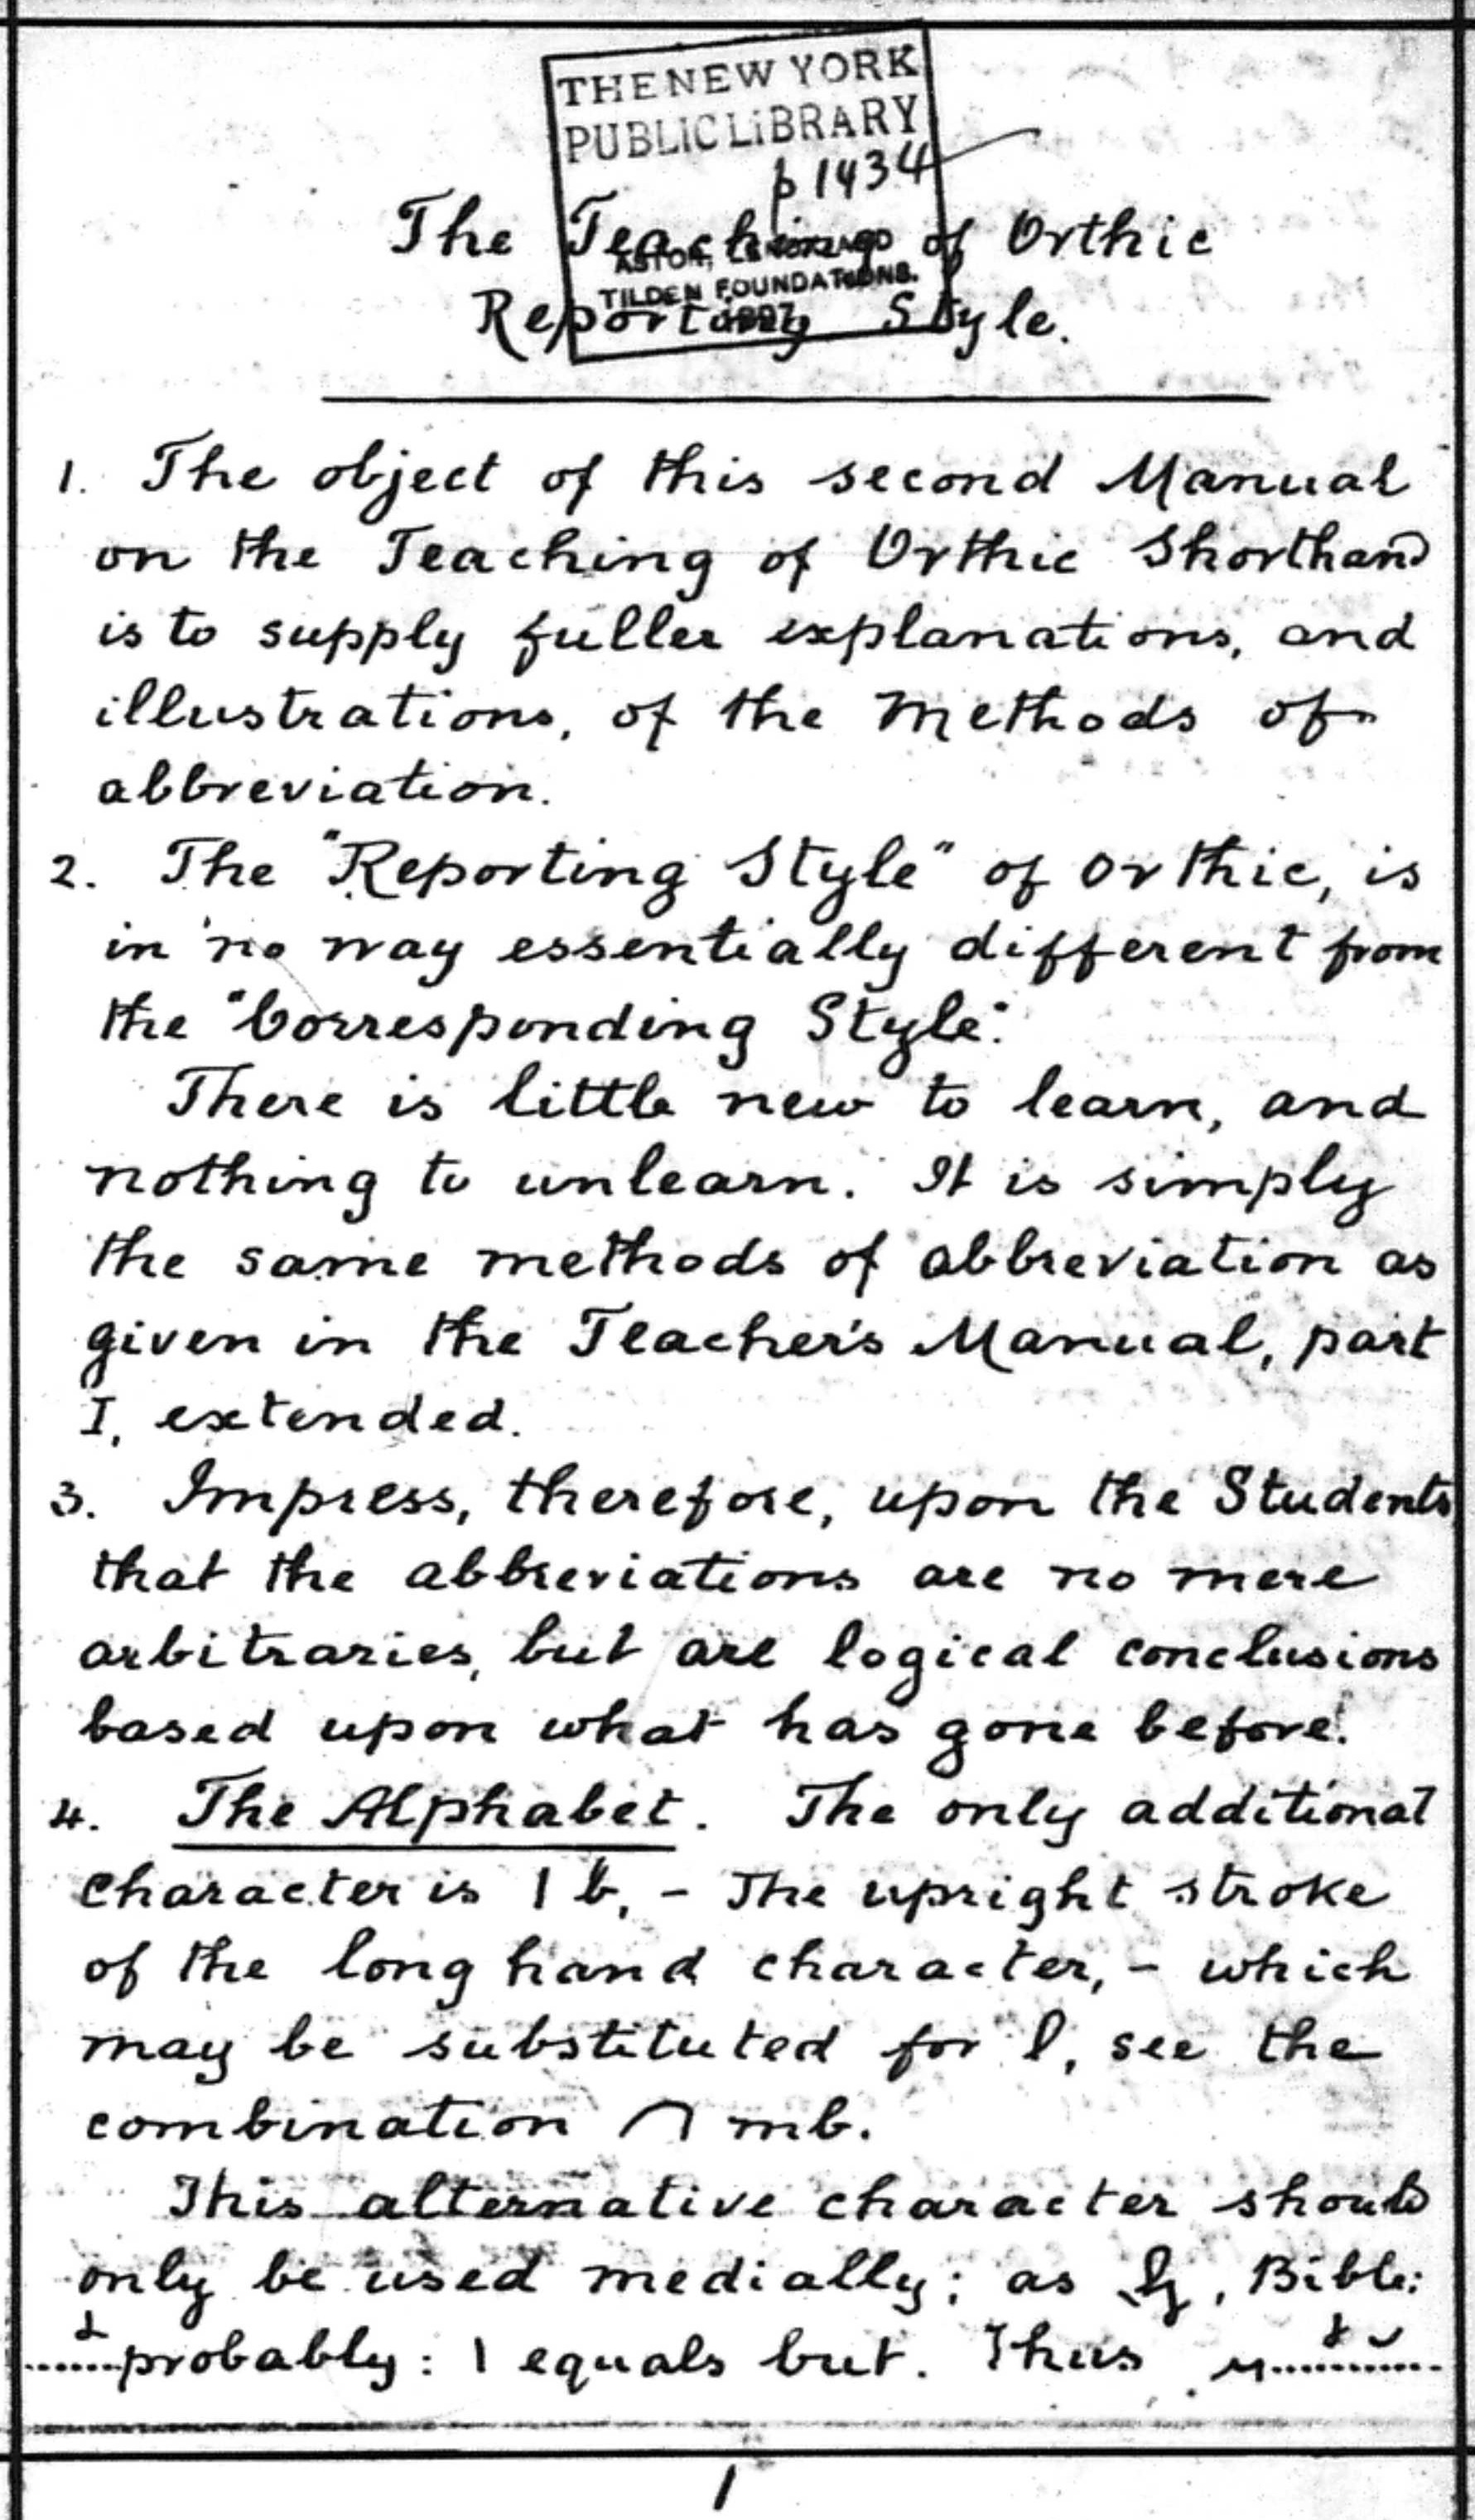 THE NEW YORK
PUBLIC LIBRARY
p 1434
ASTOR, LENOX AND
TILDEN FOUNDATIONS.
The Teaching of Orthic
Reporting Style.
1. The object of this second Manual
on the Teaching of Orthic Shorthand
is to supply fuller explanations, and
illustrations, of the Methods of
abbreviation.
2. The "Reporting Style" of Orthic, is
in no way essentially different from
the "Corresponding Style".
There is little new to learn, and
nothing to unlearn. It is simply
the same methods of abbreviation as
given in the Teacher's Manual, part
I, extended.
3. Impress, therefore, upon the Students
that the abbreviations are no mere
arbitraries, but are logical conclusions
based upon what has gone before.
4. The Alphabet. The only additional
character is | b, - The upright stroke
of the long hand character, - which
may be substituted for l, see the
combination mb.
This alternative character should
only be used medially; as , Bible:
probably: | equals but. Thus
1